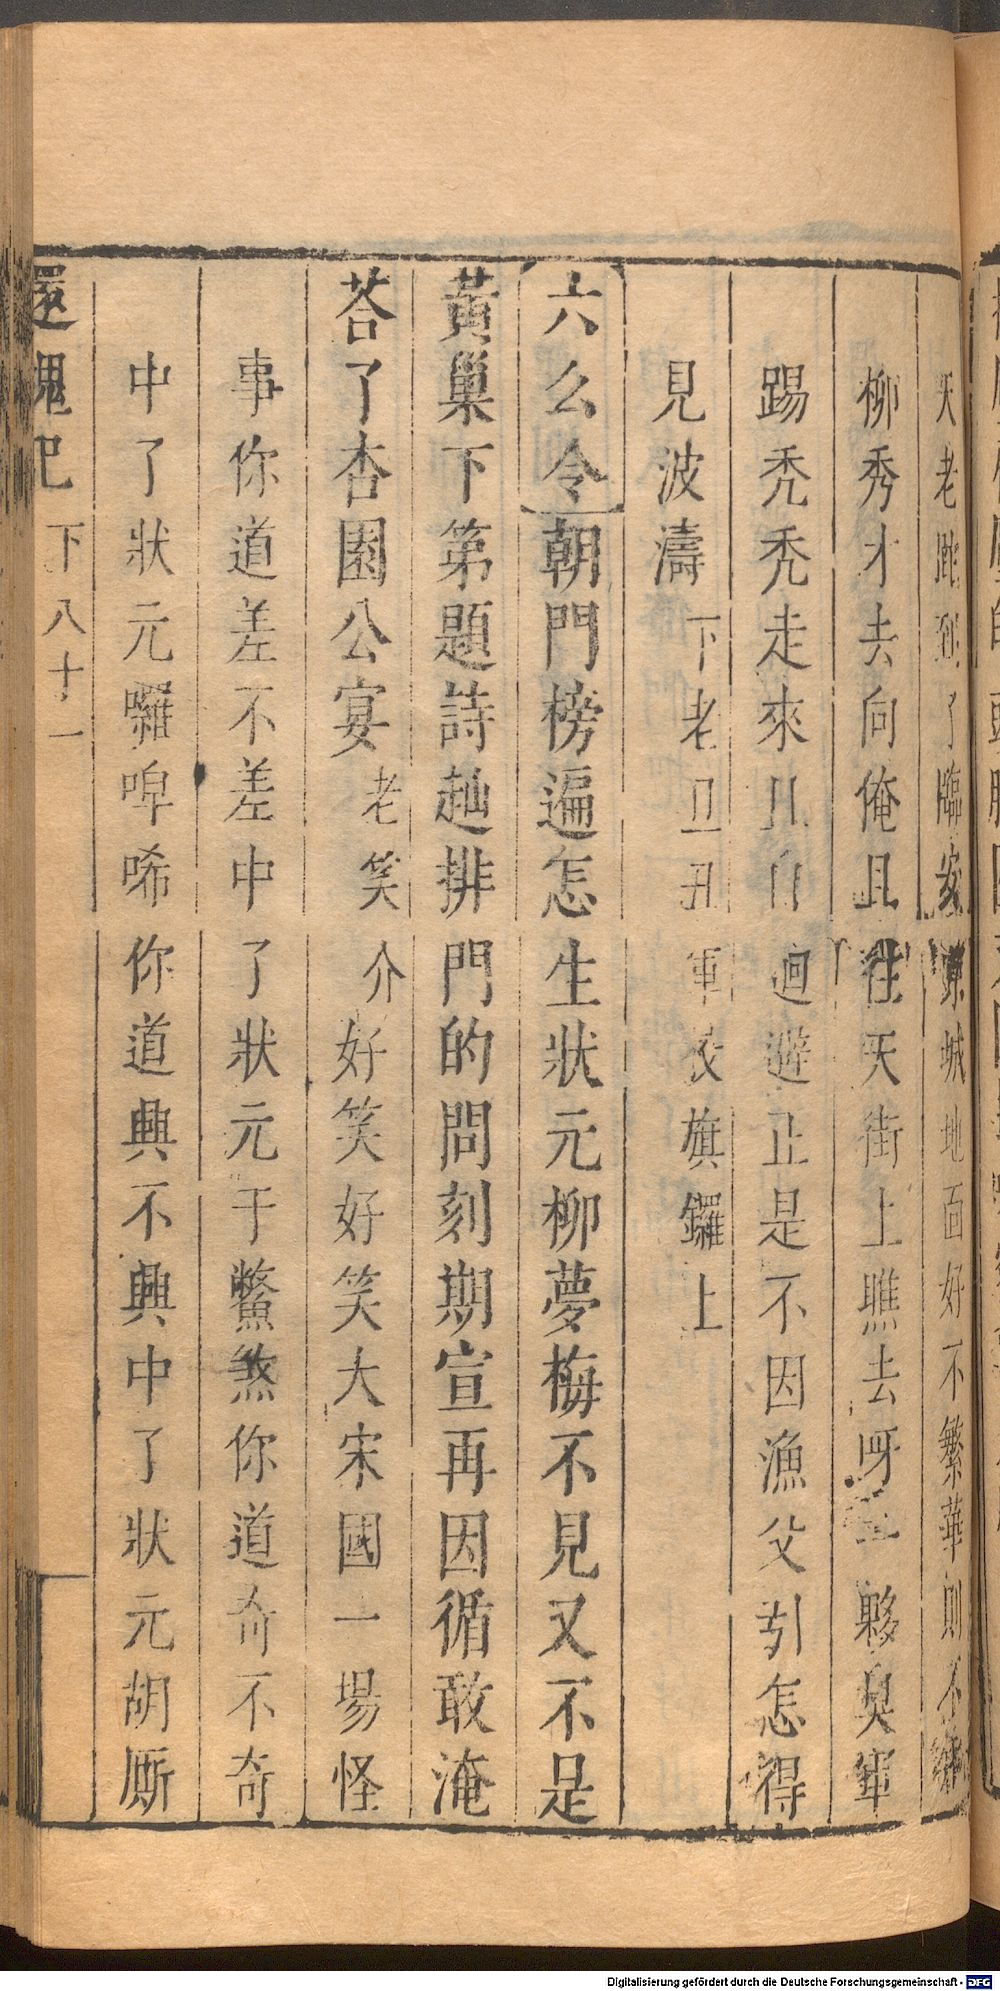 天老眦到了臨安京城地面好不繁華則不
柳秀才去向俺且往天街上瞧去呀一夥臭軍
踢秃秃走來且自迴避正是不因漁父引怎得
見波濤下老旦丑軍校旗鑼上
六么令朝門榜遍怎生狀元柳夢梅不見又不是
黃巢下第題詩趂排門的問刻期宣再因循敢淹
荅了杏園公宴老笑介好笑好笑大宋國一場怪
事你道差不差中了狀元干鱉煞你道奇不奇
中了狀元囉唣唏你道興不興中了狀元胡厮
還魂記 下 八十一
Digitalisierung gefördert durch die Deutsche Forschungsgemeinschaft - DFG